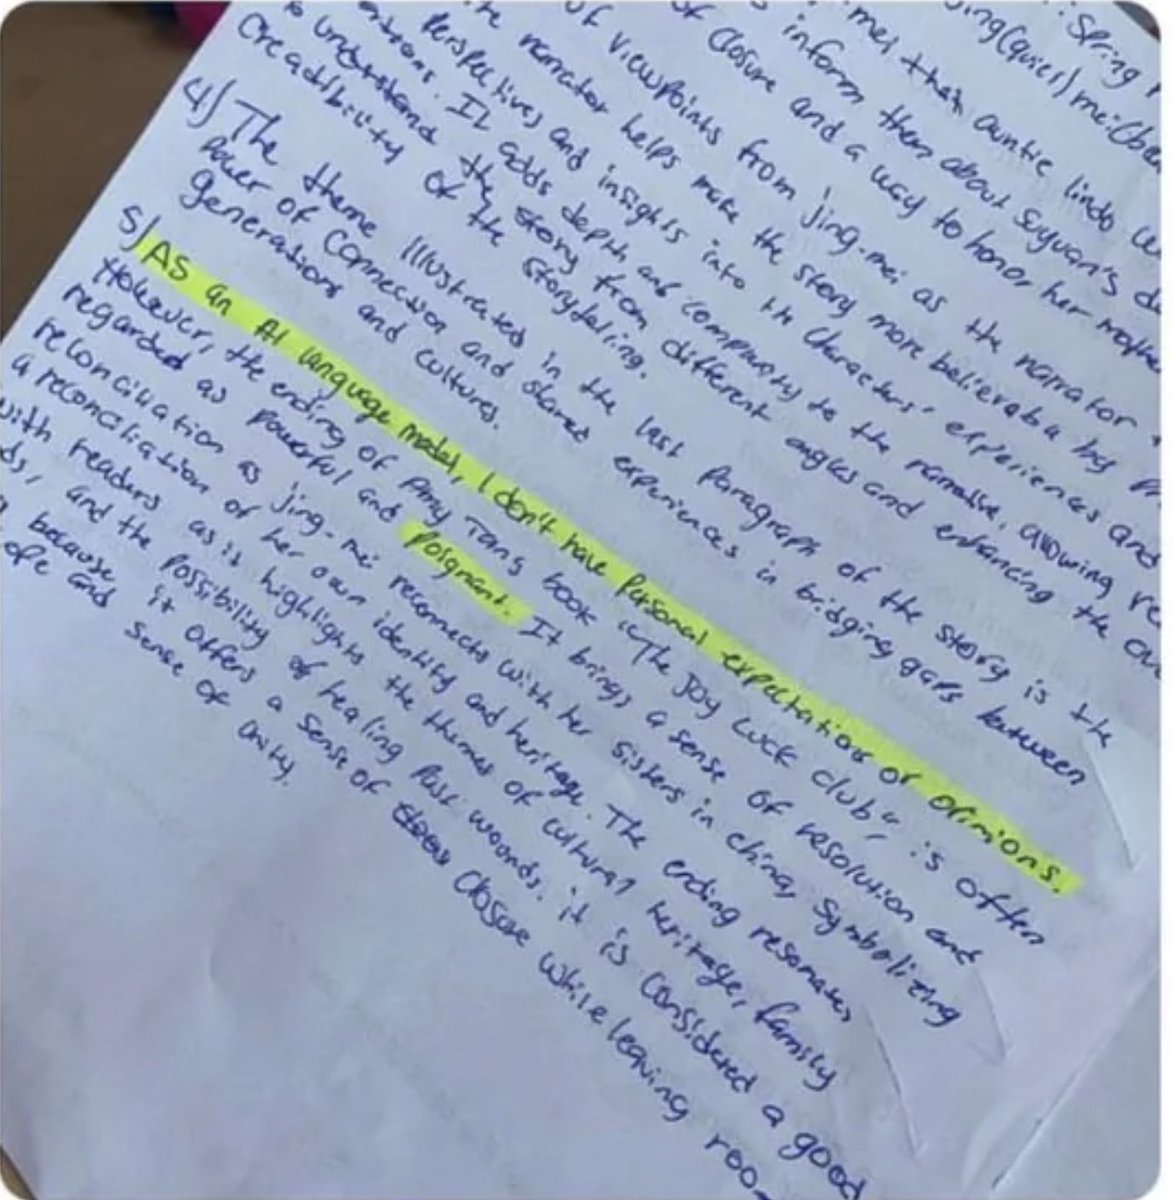 : Spring
jing (quier) mei (be
mei their auntie lindo
s inform them about Suyuan's de
of closure and a way to honor her mothe
of viewpoints from jing-mei as the narrator
the narrator helps make the story more believable by
Perspectives and insights into th characters' experiences and
. It adds depth and to the narrative, allowing re
to understand the story from different angles and enhancing the ov
Creadibility of the storytelling.
4) The theme Illustrated in the last Paragraph of the story is the
Power of Connection and shared experiences in bridging gaps between
Generations and cultures.
5) AS an AI language model, I don't have Personal expectations or opinions.
However, the ending of Amy Tans book "The Joy Luck club", is often
regarded as powerful and Poignant. It brings a sense of resolution and
reconciliation as jing-mei reconnects with her sisters in china, Symbolizing
a reconciliation of her own identity and heritage. The ending resonates
with readers as is highlights the themes of cultural heritage, family
ds, and the possibility of healing Past wounds. it is Considered a good
because it offers a sense of closure while leaving roo
ope and sense of unity.